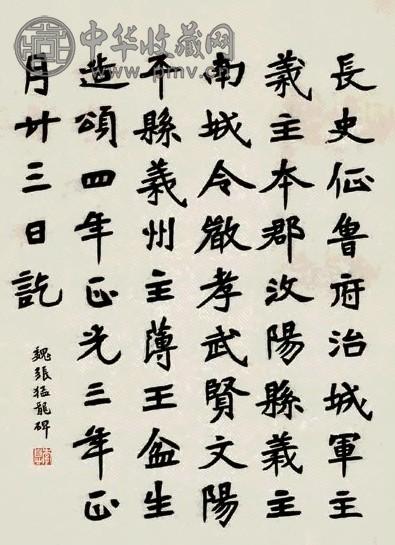 中华收藏网
www.pmv.cn
長史征魯府治城軍主
義主本郡汶陽縣義主
南城令孝武賢文陽
不縣義州主薄王盆生
造頌四年正光三年正
月廿三日訖
魏張猛龍碑